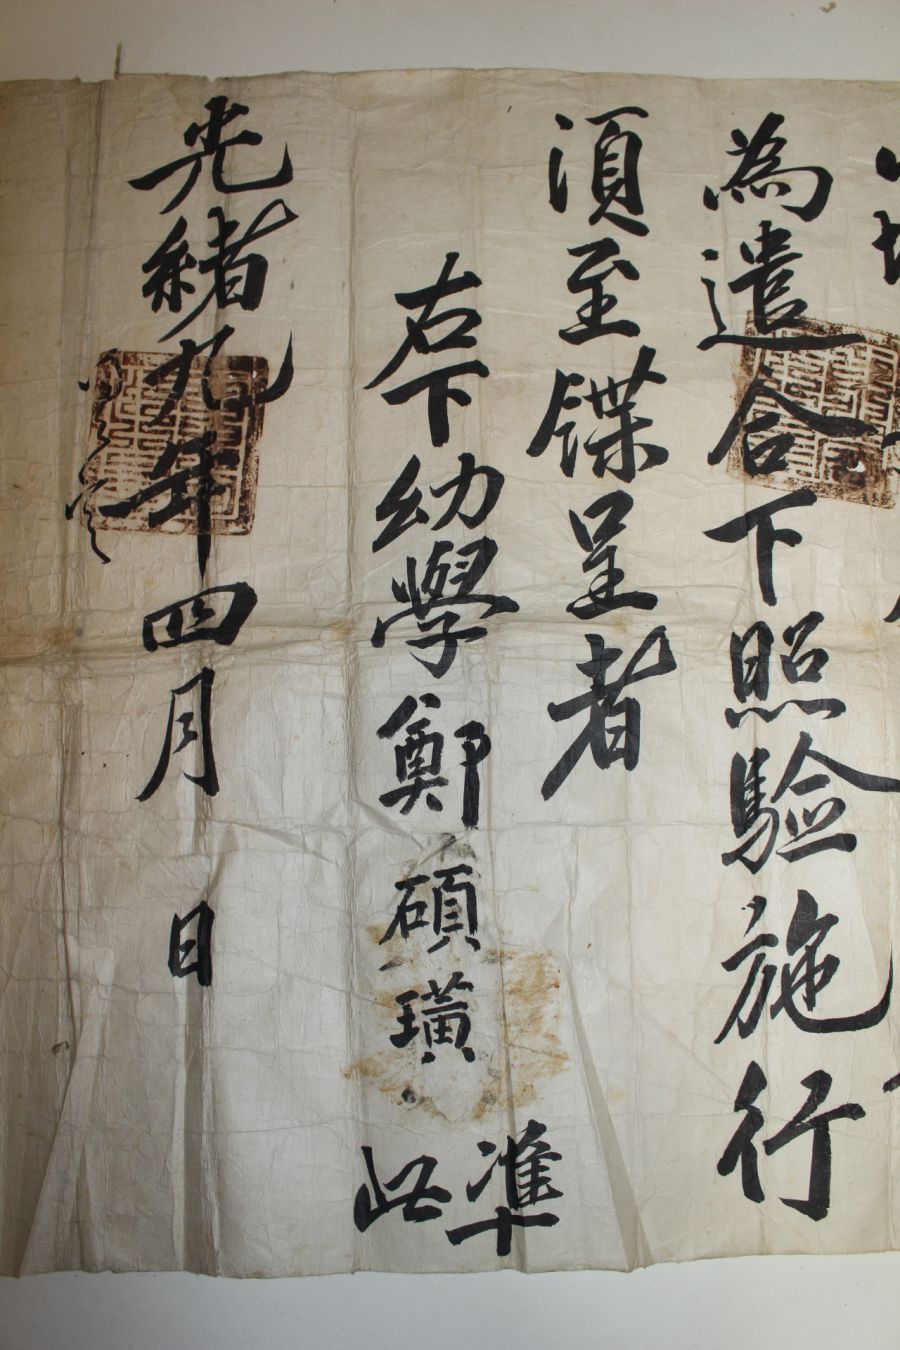 為遣合下照驗施行
須至牒呈者
右下幼學鄭碩璜 準此
光緖九年四月 日